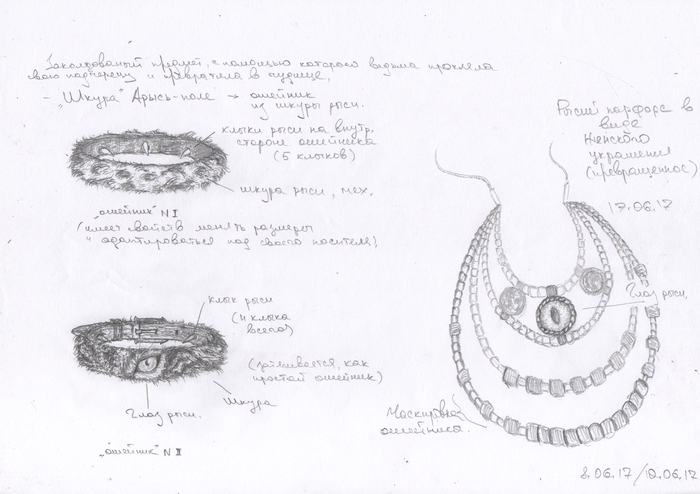 Заколдованный предмет, с помощью которого ведьма прокляла
свою падчерицу и превратила в чудище,
- "Шкура" Арысь-поле → ошейник
из шкуры рыси.
клыки рыси на внутр.
стороне ошейника
(5 клыков)
шкура рыси, мех.
"ошейник" N I
(имеет свойств менять размеры
и адаптироваться под своего носителя)
клык рыси
(4 клыка
всего)
(затягивается, как
простой ошейник)
Шкура
Глаз рыси.
"ошейник" N II
Рысий парфорс в
виде
женского
украшения
(превращенное)
17.06.17
Глаз рыси.
Маскировка
ошейника.
8.06.17/10.06.17